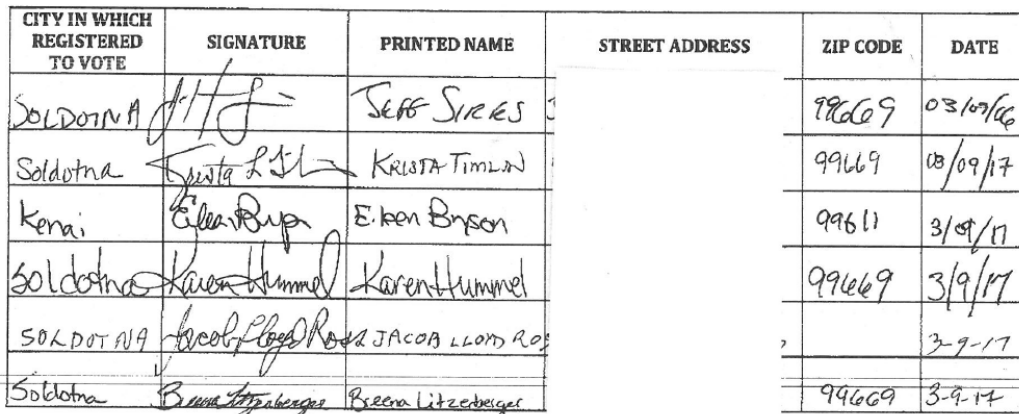 CITY IN WHICH REGISTERED TO VOTE SIGNATURE PRINTED NAME STREET ADDRESS ZIP CODE DATE
SOLDOTNA JEFF SIRIES 99669
Soldotna Krista KRISTA TIMLIN 99669 03/09/17
Kenai Eileen Bryson Eileen Bryson 99611 3/09/17
Soldotna Karen Hummel Karen Hummel 99669 3/9/17
SOLDOTNA Jacob Lloyd Ross JACOB LLOYD ROS 3-9-17
Soldotna Breena Litzenberger Breena Litzenberger 99669 3-9-17